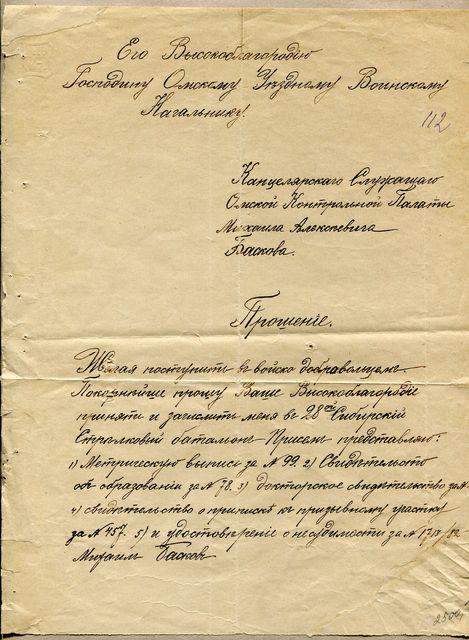 Его Высокоблагородію
Господину Омскому Уѣздному Воинскому
Начальнику.
112
Канцелярскаго Служащаго
Омской Контрольной Палаты
Михаила Алексѣевича
Баскова.
Прошеніе.
Желая поступить въ войско добравольцемъ
Покорнѣйше прошу Ваше Высокоблагородіе
принять и зачислить меня въ 28ой Сибирскій
Стрѣлковый баталіонъ Присемъ представляю:
1) Метрическую выпись за № 99. 2) Свидѣтельство
объ образованіи за № 78. 3) докторское свидѣтельство за №
4) свидѣтельство о припискѣ къ призывному участку
за № 457. 5) и удостовѣреніе о несудимости за №
Михаилъ Басковъ